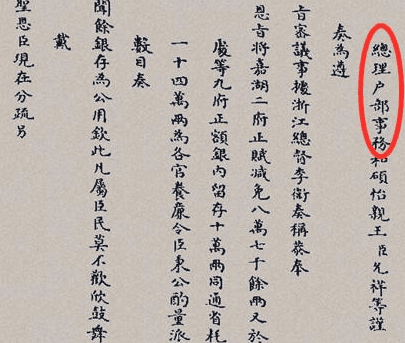 總理户部事務和碩怡親王臣允祥等謹
奏為遵
旨審議事據浙江總督李衛奏稱恭奉
恩旨將嘉湖二府正賦減免八萬七千餘兩又於
處等九府正額銀内留存十萬兩同通省耗
一十四萬兩為各官養廉令臣秉公酌量派
數目奏
聞餘銀存為公用欽此凡屬臣民莫不歡欣鼓舞
戴
聖恩臣現在分疏另